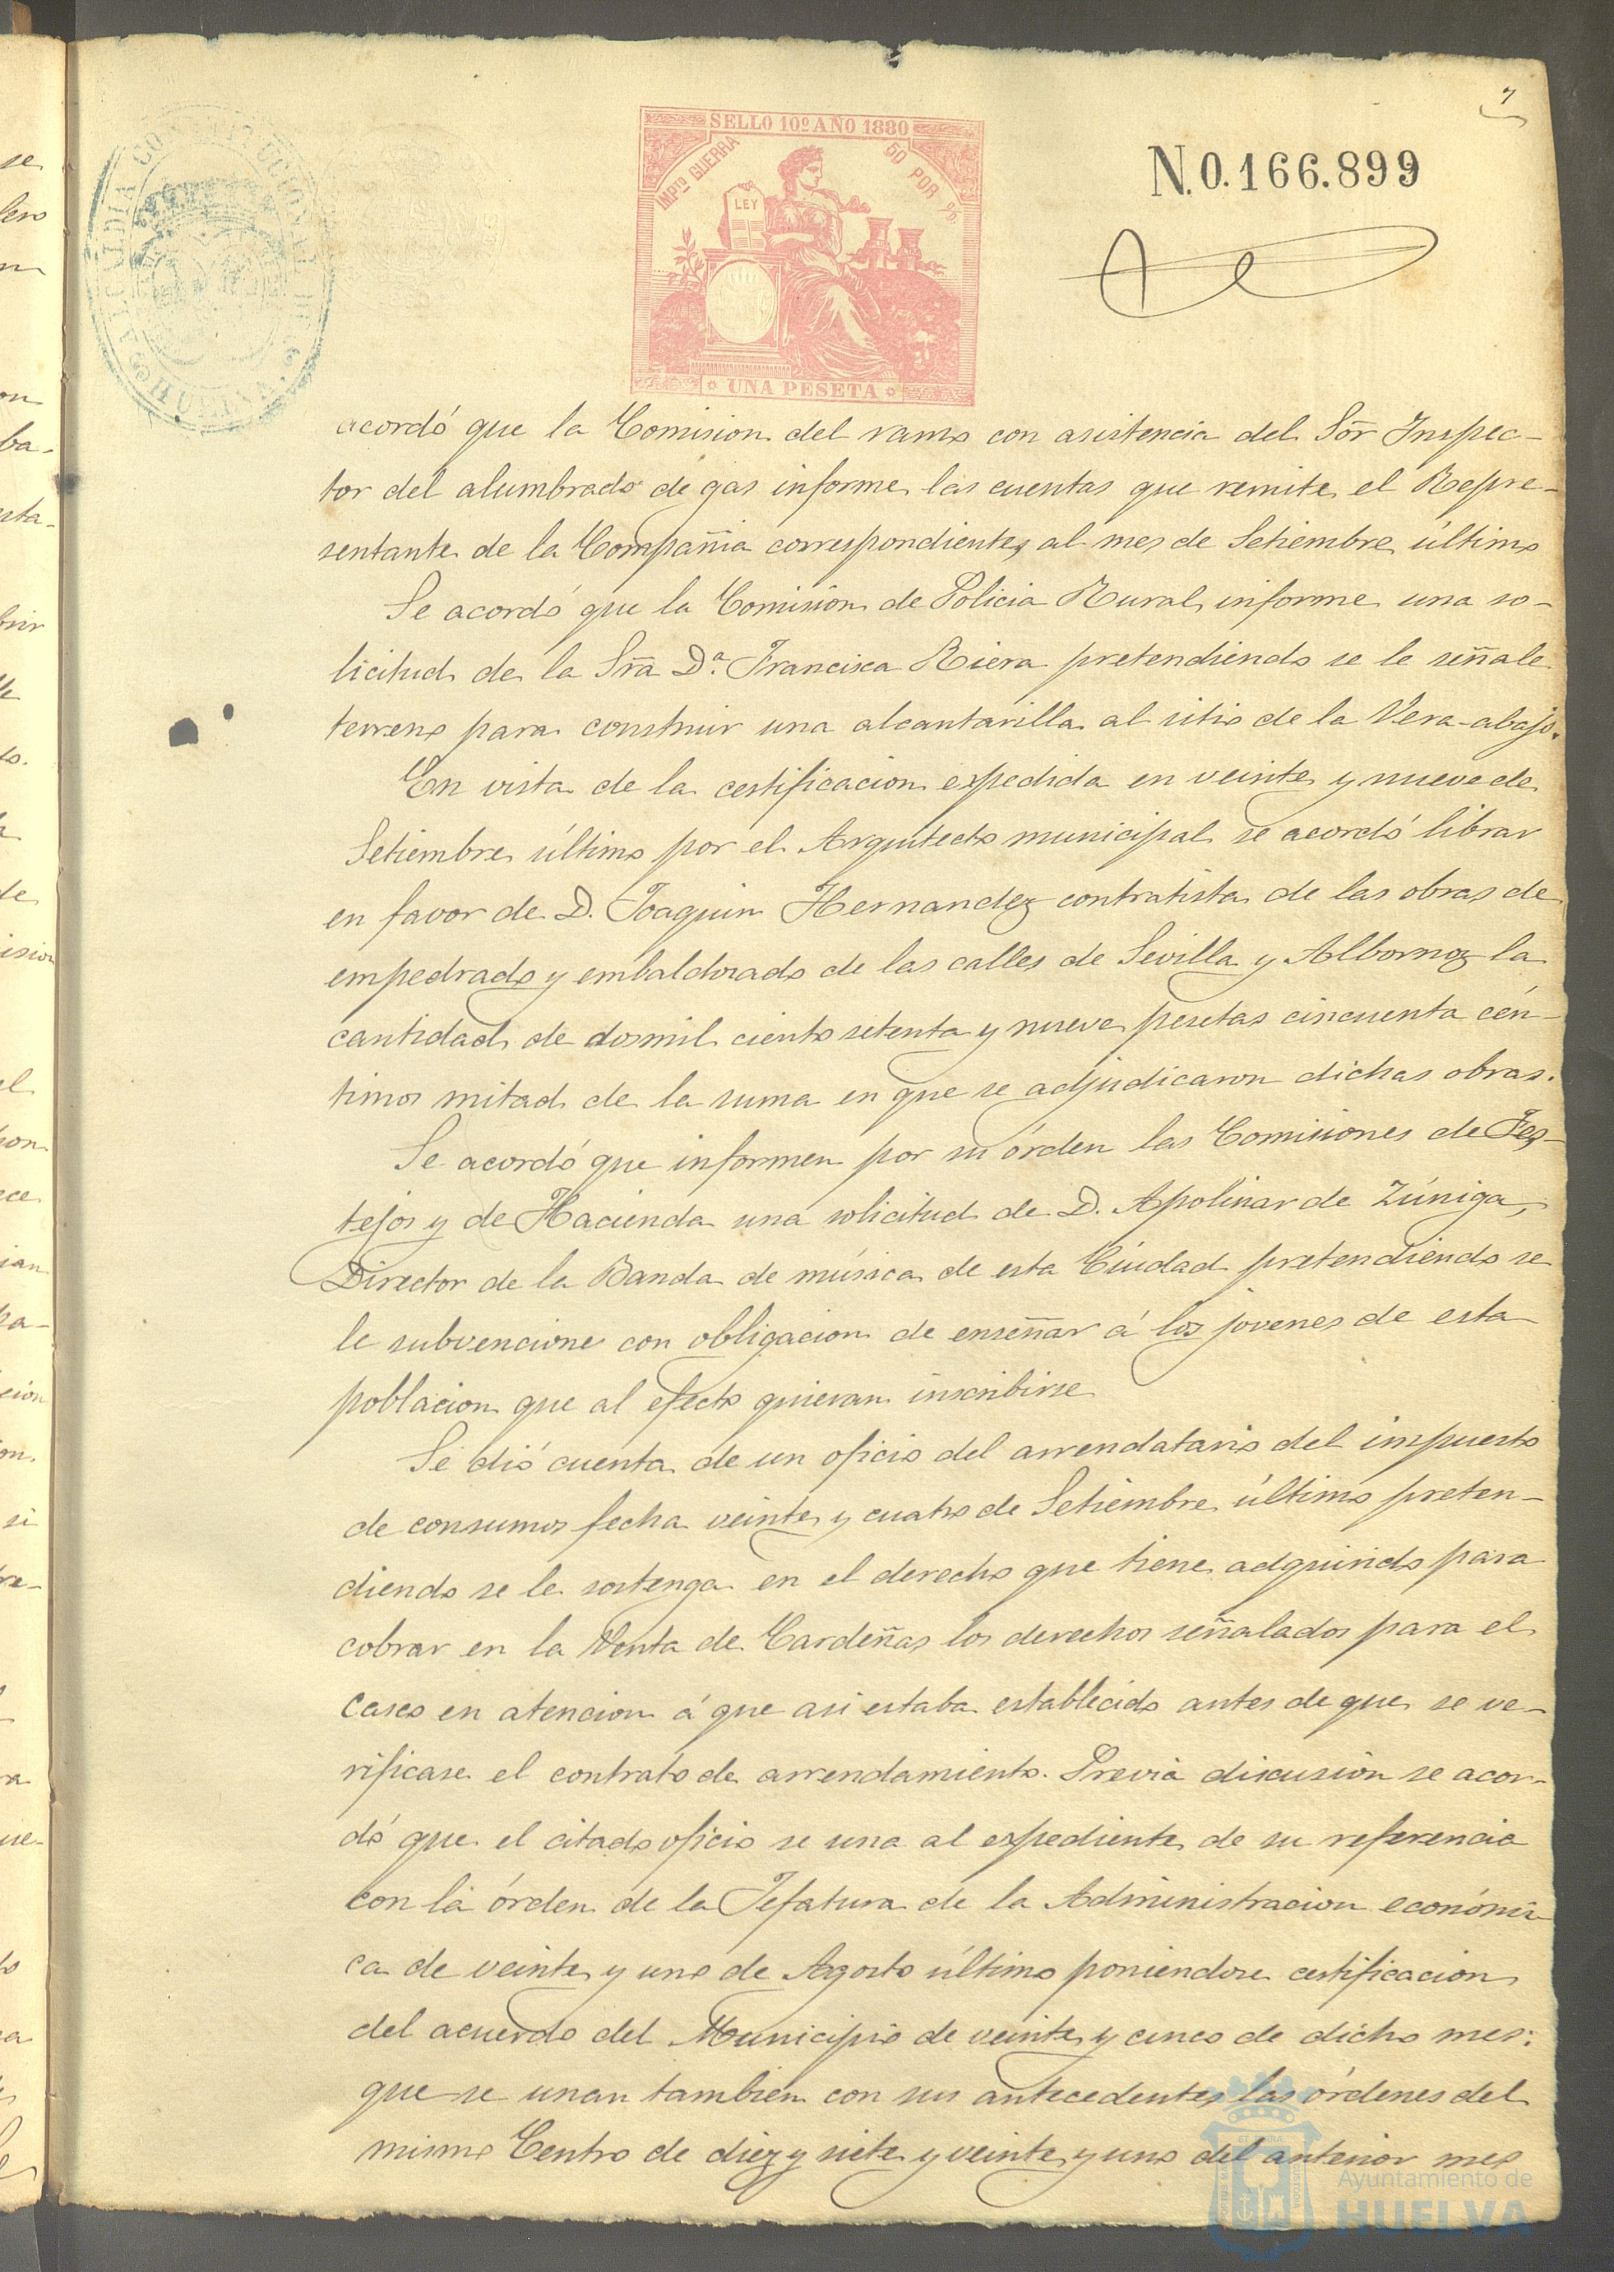 7
SELLO 10º AÑO 1880
IMPTO GUERRA 50 POR %
LEY
UNA PESETA
N.0.166.899
ALCALDIA CONSTITUCIONAL DE
HUELVA
acordó que la Comision del ramo con asistencia del Sōr Inspec-
tor del alumbrado de gas informe las cuentas que remite el Repre-
sentante de la Compañia correspondientes al mes de Setiembre último
Se acordó que la Comision de Policia Rural informe una so-
licitud de la Srā Dª. Francisca Riera pretendiendo se le señale
terreno para construir una alcantarilla al sitio de la Vera-abajo.
En vista de la certificacion expedida en veinte y nueve de
Setiembre último por el Arquitecto municipal se acordó librar
en favor de D. Joaquin Hernandez contratista de las obras de
empedrado y embaldosado de las calles de Sevilla y Albornoz la
cantidad de dosmil ciento setenta y nueve pesetas cincuenta cén-
timos mitad de la suma en que se adjudicaron dichas obras.
Se acordó que informen por su órden las Comisiones de Fes-
tejos y de Hacienda una solicitud de D. Apolinar de Zúniga,
Director de la Banda de música de esta Ciudad pretendiendo se
le subvencione con obligacion de enseñar á los jovenes de esta
poblacion que al efecto quieran inscribirse
Se dió cuenta de un oficio del arrendatario del impuesto
de consumos fecha veinte y cuatro de Setiembre último preten-
diendo se le sostenga en el derecho que tiene adquirido para
cobrar en la Venta de Cardeñas los derechos señalados para el
casco en atencion á que asi estaba establecido antes de que se ve-
rificase el contrato de arrendamiento. Previa discusion se acor-
dó que el citado oficio se una al expediente de su referencia
con la órden de la Jefatura de la Administracion económi-
ca de veinte y uno de Agosto último poniendose certificacion
del acuerdo del Municipio de veinte y cinco de dicho mes:
que se unan tambien con sus antecedentes las órdenes del
mismo Centro de diez y siete y veinte y uno del anterior mes
Ayuntamiento de
HUELVA